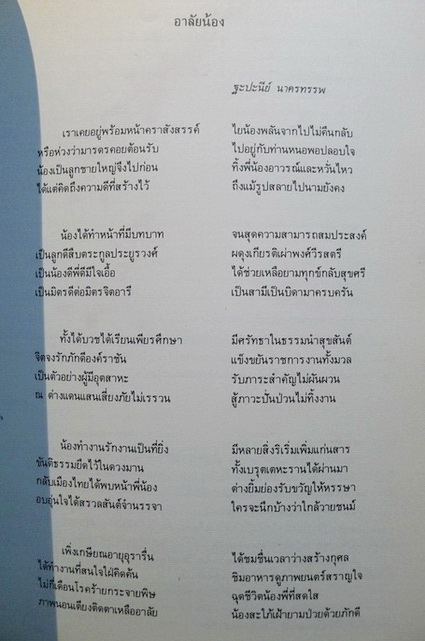 อาลัยน้อง
ฐะปะนีย์ นาครทรรพ
เราเคยอยู่พร้อมหน้าคราสังสรรค์ ไยน้องพลันจากไปไม่คืนกลับ
หรือห่วงว่ามารดรคอยต้อนรับ ไปอยู่กับท่านหนอพอปลอบใจ
น้องเป็นลูกชายใหญ่จึงไปก่อน ทิ้งพี่น้องอาวรณ์และหวั่นไหว
ได้แต่คิดถึงความดีที่สร้างไว้ ถึงแม้รูปสลายไปนามยังคง
น้องได้ทำหน้าที่มีบทบาท จนสุดความสามารถสมประสงค์
เป็นลูกดีสืบตระกูลประยูรวงศ์ ผดุงเกียรติเผ่าพงศ์วีรสตรี
เป็นน้องดีพี่ดีมีใจเอื้อ ได้ช่วยเหลือยามทุกข์กลับสุขศรี
เป็นมิตรดีต่อมิตรจิตอารี เป็นสามีเป็นบิดามาครบครัน
ทั้งได้บวชได้เรียนเพียรศึกษา มีศรัทธาในธรรมนำสุขสันต์
จิตจงรักภักดีองค์ราชัน แข็งขยันราชการงานทั้งมวล
เป็นตัวอย่างผู้มีอุตสาหะ รับภาระสำคัญไม่ผันผวน
ณ ต่างแดนแสนเสี่ยงภัยไม่เรรวน สู้ภาวะปั่นป่วนไม่ทิ้งงาน
น้องทำงานรักงานเป็นที่ยิ่ง มีหลายสิ่งริเริ่มเพิ่มแก่นสาร
ขันติธรรมยึดไว้ในดวงมาน ทั้งเบรุตเตหะรานได้ผ่านมา
กลับเมืองไทยได้พบหน้าพี่น้อง ต่างยิ้มย่องรับขวัญให้หรรษา
อบอุ่นใจได้สรวลสันต์จำนรรจา ใครจะนึกบ้างว่าใกล้วายชนม์
เพิ่งเกษียณอายุอุรารื่น ได้ชมชื่นเวลาว่างสร้างกุศล
ได้ทำงานที่สนใจใฝ่คิดค้น ชิมอาหารดูภาพยนตร์สราญใจ
ไม่กี่เดือนโรคร้ายกระจายพิษ ฉุดชีวิตน้องพี่ที่สดใส
ภาพนอนเตียงติดตาเหลืออาลัย น้องสะใภ้เฝ้ายามป่วยด้วยภักดี